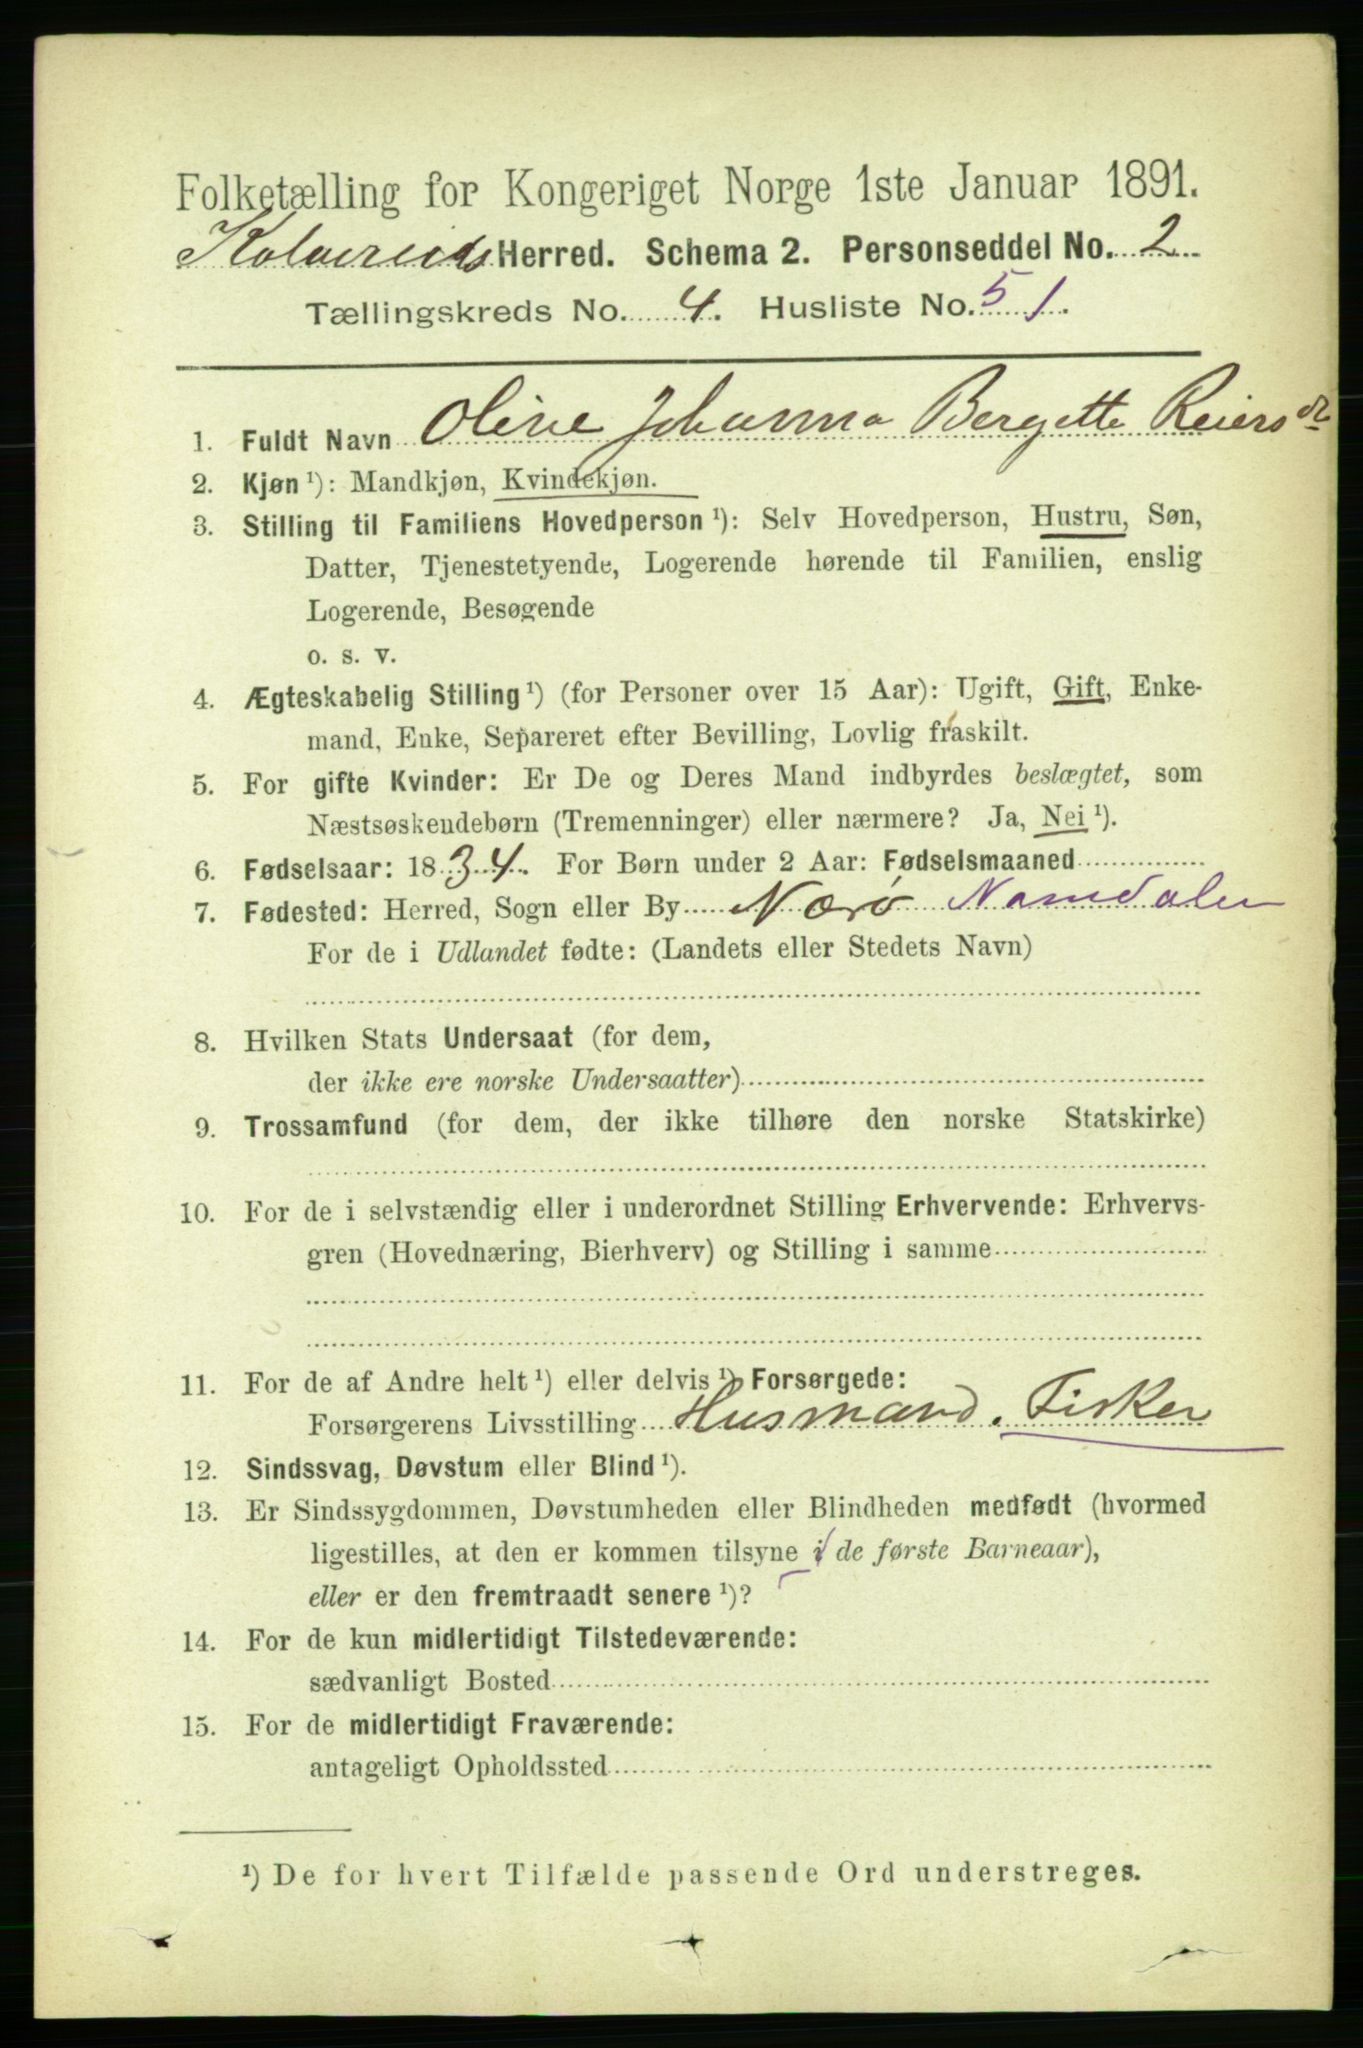 Folketælling for Kongeriget Norge 1ste Januar 1891.
Kolvereids Herred. Schema 2. Personseddel No. 2
Tællingskreds No. 4. Husliste No. 51.
1. Fuldt Navn Oline Johanna Bergette Reiersdr
2. Kjøn ¹): Mandkjøn, Kvindekjøn.
3. Stilling til Familiens Hovedperson ¹): Selv Hovedperson, Hustru, Søn,
Datter, Tjenestetyende, Logerende hørende til Familien, enslig
Logerende, Besøgende
o. s. v.
4. Ægteskabelig Stilling ¹) (for Personer over 15 Aar): Ugift, Gift, Enke-
mand, Enke, Separeret efter Bevilling, Lovlig fraskilt.
5. For gifte Kvinder: Er De og Deres Mand indbyrdes beslægtet, som
Næstsøskendebørn (Tremenninger) eller nærmere? Ja, Nei ¹).
6. Fødselsaar: 1834. For Børn under 2 Aar: Fødselsmaaned
7. Fødested: Herred, Sogn eller By Nærø Namdalen
For de i Udlandet fødte: (Landets eller Stedets Navn)
8. Hvilken Stats Undersaat (for dem,
der ikke ere norske Undersaatter)
9. Trossamfund (for dem, der ikke tilhøre den norske Statskirke)
10. For de i selvstændig eller i underordnet Stilling Erhvervende: Erhvervs-
gren (Hovednæring, Bierhverv) og Stilling i samme
11. For de af Andre helt ¹) eller delvis ¹) Forsørgede:
Forsørgerens Livsstilling Husmand. Fisker
12. Sindssvag, Døvstum eller Blind ¹).
13. Er Sindssygdommen, Døvstumheden eller Blindheden medfødt (hvormed
ligestilles, at den er kommen tilsyne i de første Barneaar),
eller er den fremtraadt senere ¹)?
14. For de kun midlertidigt Tilstedeværende:
sædvanligt Bosted
15. For de midlertidigt Fraværende:
antageligt Opholdssted
¹) De for hvert Tilfælde passende Ord understreges.